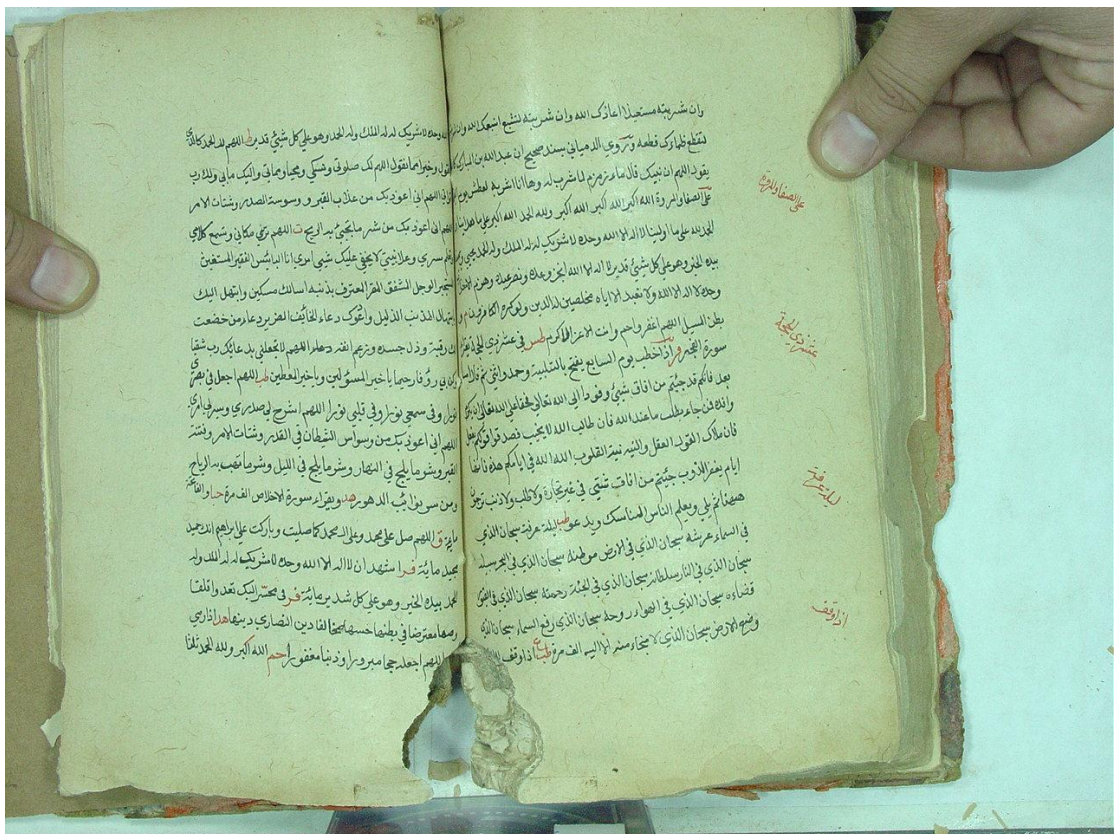 وان شربته مستعيذا اعاذك الله وان شربته لتشبع اشبعك الله وان
لتقطع ظماءك قطعه وروي الدمياطي بسند صحيح ان عبد الله بن المبارك
يقول اللهم ان نبيك قال ماء زمزم لما شرب له وها انا اشربه لعطش يوم
على الصفا والمروة الله اكبر الله اكبر الله اكبر ولله الحمد الله اكبر على ما هدانا
على الصفا والمروة
الحمد لله على ما اولينا لا اله الا الله وحده لا شريك له له الملك وله الحمد يحيي
بيده الخير وهو على كل شيئ قدير لا اله الا الله انجز وعده ونصر عبده وهزم
وحده لا اله الا الله ولا نعبد الا اياه مخلصين له الدين ولو كره الكافرون
بطن المسيل اللهم اغفر وارحم وانت الاعز الاكرم طس في عشر ذي الحجة
عشر ذي الحجة
سورة الفجر فر اذا خطب يوم السابع يفتح بالتلبية وحمد واثنى ثم قال اما
بعد فانكم قد جئتم من افاق شيئ وفودا الى الله تعالى فحقا على الله تعالى ان
وافده فمن جاء يطلب ما عند الله فان طالب الله لا يخيب فصدقوا قولكم بفعل
فان ملاك القول العقل والنية نية القلوب الله الله في ايامكم هذه فانها
ايام يغفر الذنوب جئتم من افاق شتى في غير تجارة ولا طلب ولا دنيا ترجون
ههنا ثم يلبي ويعلم الناس المناسك ويدعو طب ليلة عرفة سبحان الذي
ليلة عرفة
في السماء عرشه سبحان الذي في الارض موطئه سبحان الذي في البحر سبيله
سبحان الذي في النار سلطانه سبحان الذي في الجنة رحمته سبحان الذي في القبور
قضاءه سبحان الذي في الهواء روحه سبحان الذي رفع السماء سبحان الذي
وضع الارض سبحان الذي لا منجاء منه الا اليه الف مرة طب اذا وقف
اذا وقف
وحده لا شريك له له الملك وله الحمد وهو على كل شيئ قدير ط اللهم لك الحمد كالذي
نقول وخيرا مما نقول اللهم لك صلوتي ونسكي ومحياي ومماتي واليك مابي ولك رب
تراثي اللهم اني اعوذ بك من عذاب القبر و وسوسة الصدر وشتات الامر
اللهم اني اعوذ بك من شر ما تجئ به الريح ت اللهم ترى مكاني وتسمع كلامي
وتعلم سري وعلانيتي لا يخفى عليك شيئ امري انا البائس الفقير المستغيث
المستجير الوجل المشفق المقر المعترف بذنبه اسالك مسكين وابتهل اليك
ابتهال المذنب الذليل وادعوك دعاء الخائف الضرير دعاء من خضعت
لك رقبته وذل جسده ورغم انفه دعاء اللهم لا تجعلني بدعائك رب شقيا
وكن بي رؤفا رحيما يا خير المسؤلين ويا خير المعطين طب اللهم اجعل في بصري
نورا وفي سمعي نورا وفي قلبي نورا اللهم اشرح لي صدري ويسر لي امري
اللهم اني اعوذ بك من وسواس الشيطان في الصدر وشتات الامر وفتنة
القبر وشر ما يلج في النهار وشر ما يلج في الليل وشر ما تهب به الرياح
ومن شر بوايب الدهور هد ويقراء سورة الاخلاص الف مرة حا والفاتحة
ماية ق اللهم صل على محمد وعلى ال محمد كما صليت وباركت على ابراهيم انك حميد
مجيد ماية فر اشهد ان لا اله الا الله وحده لا شريك له له الملك وله
الحمد بيده الخير وهو على كل شيئ قدير ماية فر في محسر اليك تعدو اقلقا
وضينها معترضا في بطنها جنينها مخالفا دين النصارى دينها هد اذا رمي
اللهم اجعله حجا مبرورا وذنبا مغفورا حم الله اكبر ولله الحمد ثلثا